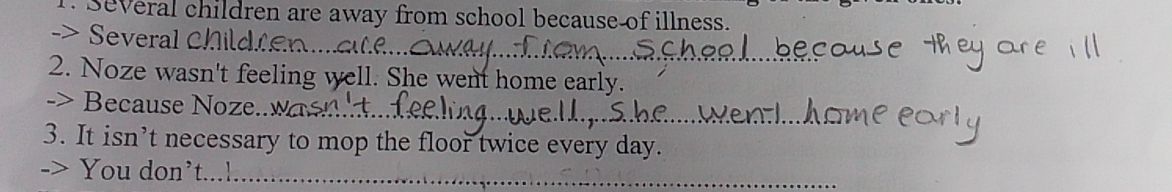 1. Several children are away from school because of illness.
-> Several children...are...away...from.....school..because they are ill
2. Noze wasn't feeling well. She went home early.
-> Because Noze..wasn't...feeling..well.,..she.....went...home early
3. It isn't necessary to mop the floor twice every day.
-> You don't...